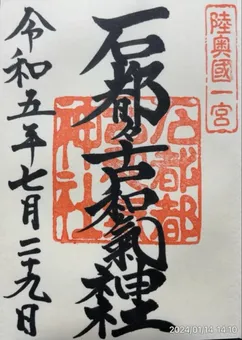 陸奥國一宮
石都々古和氣神社
石都都
神社
令和五年七月二十九日
2024/01/14 14:10